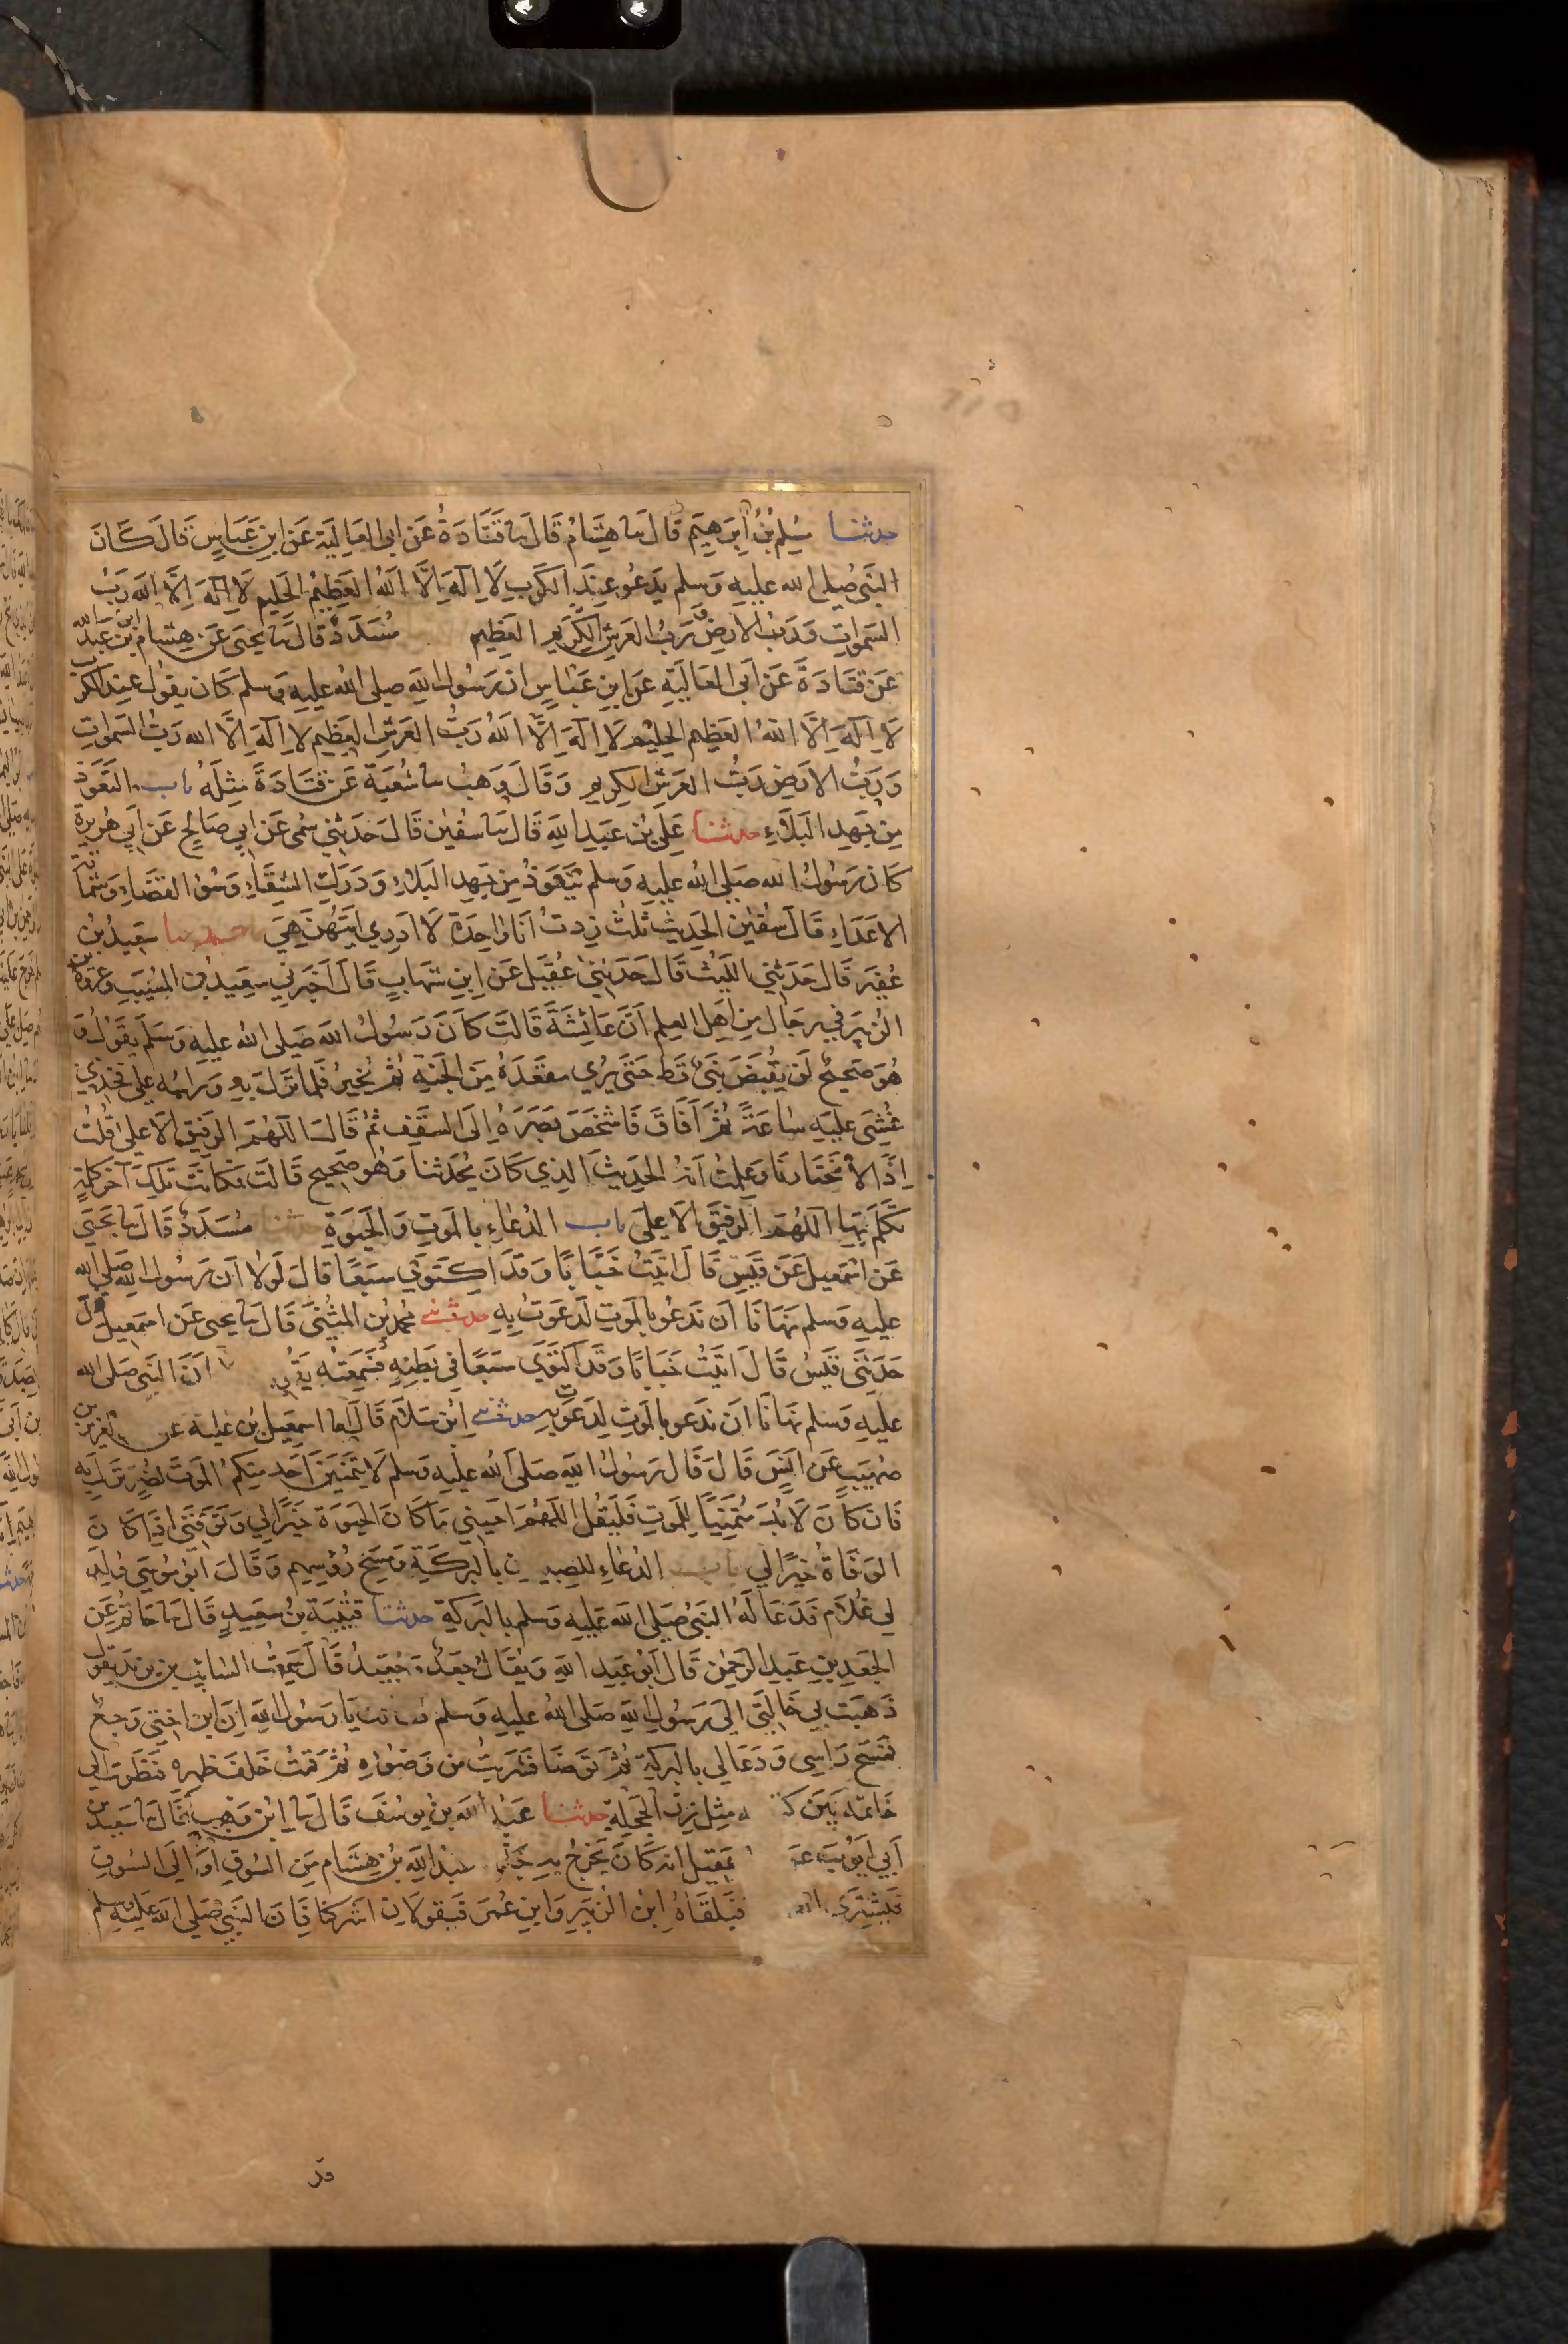 حدثنا مسلم بن ابرهيم قال نا هشام قال نا قتادة عن ابى العالية عن ابن عباس قال كان
النبى صلى الله عليه وسلم يدعو عند الكرب لا اله الا الله العظيم الحليم لا اله الا الله رب
السموات ورب الارض ورب العرش الكريم العظيم مسدد قال نا يحيى عن هشام ابن عبد الله
عن قتادة عن ابى العالية عن ابن عباس ان رسول الله صلى الله عليه وسلم كان يقول عند الكرب
لا اله الا الله العظيم الحليم لا اله الا الله رب العرش العظيم لا اله الا الله رب السموات
ورب الارض رب العرش الكريم وقال وهب نا شعبة عن قتادة مثله باب التعوذ
من جهد البلاء حدثنا على بن عبد الله قال نا سفين قال حدثني سمى عن ابي صالح عن ابي هريرة
كان رسول الله صلى الله عليه وسلم يتعوذ من جهد البلاء ودرك الشقاء وسوء القضاء وشماتة
الاعداء قال سفين الحديث ثلث زدت انا واحدة لا ادري ايتهن هي سعيد بن
عفير قال حدثني الليث قال حدثني عقيل عن ابن شهاب قال اخبرني سعيد بن المسيب وعروة بن
الزبير في رجال من اهل العلم ان عائشة قالت كان رسول الله صلى الله عليه وسلم يقول و
هو صحيح لن يقبض نبى قط حتى يرى مقعده من الجنة ثم يخير فلما نزل به وراسه على فخذي
غشي عليه ساعة ثم افاق فاشخص بصره الى السقف ثم قال اللهم الرفيق الاعلى قلت
اذا لا يختارنا وعلمت انه الحديث الذي كان يحدثنا وهو صحيح قالت فكانت تلك آخر كلمة
تكلم بها اللهم الرفيق الاعلى باب الدعاء بالموت والحيوة حدثنا مسدد قال نا يحيى
عن اسمعيل عن قيس قال اتيت خبابا وقد اكتوي سبعا قال لولا ان رسول الله صلى الله
عليه وسلم نهانا ان ندعو بالموت لدعوت به حدثني محمد بن المثنى قال نا يحيى عن اسمعيل قال
حدثني قيس قال اتيت خبابا وقد اكتوي سبعا في بطنه فسمعته ان النبى صلى الله
عليه وسلم نهانا ان ندعو بالموت لدعوت به حدثني ابن سلام قال انا اسمعيل بن علية عن العزيز بن
صهيب عن انس قال قال رسول الله صلى الله عليه وسلم لا يتمنين احد منكم الموت لضر نزل به
فان كان لا بد متمنيا للموت فليقل اللهم احيني ما كان الحيوة خيرا لي وتوفني اذا كان
الوفاة خيرا لي باب الدعاء للصبيان بالبركة ومسح رؤسهم وقال ابو موسى ولد
لي غلام فدعا له النبى صلى الله عليه وسلم بالبركة حدثنا قتيبة بن سعيد قال نا حاتم عن
الجعد بن عبد الرحمن قال ابو عبد الله ويقال جعد وجعيد قال سمعت السائب بن يزيد يقول
ذهبت بي خالتي الى رسول الله صلى الله عليه وسلم فقالت يا رسول الله ان ابن اختي وجع
فمسح راسي ودعا لي بالبركة ثم توضا فشربت من وضوئه ثم قمت خلف ظهره فنظرت الى
خاتمه بين مثل زر الحجلة حدثنا عبد الله بن يوسف قال نا ابن وهب قال نا سعيد بن
ابي ايوب عقيل انه كان يخرج به جده عبد الله بن هشام من السوق او الى السوق
فيشترى فيلقاه ابن الزبير وابن عمر فيقولان اشركنا فان النبى صلى الله عليه وسلم
قد